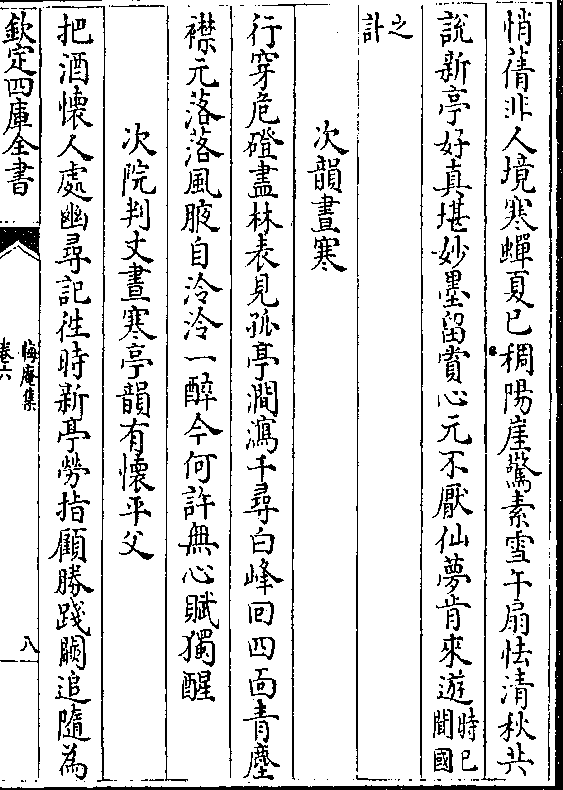 悄蒨非人境寒蟬夏已稠陽崖驚素雪午扇怯清秋共
說新亭好真堪妙墨留賞心元不厭仙夢肯來遊時已聞國
之計
次韻晝寒
行穿危磴盡林表見孤亭澗瀉千尋白峰回四面青塵
襟元落落風腋自泠泠一醉今何許無心賦獨醒
次院判丈晝寒亭韻有懷平父
把酒懷人處幽尋記徃時新亭勞指顧勝踐闕追隨為
欽定四庫全書
晦庵集
卷六
八